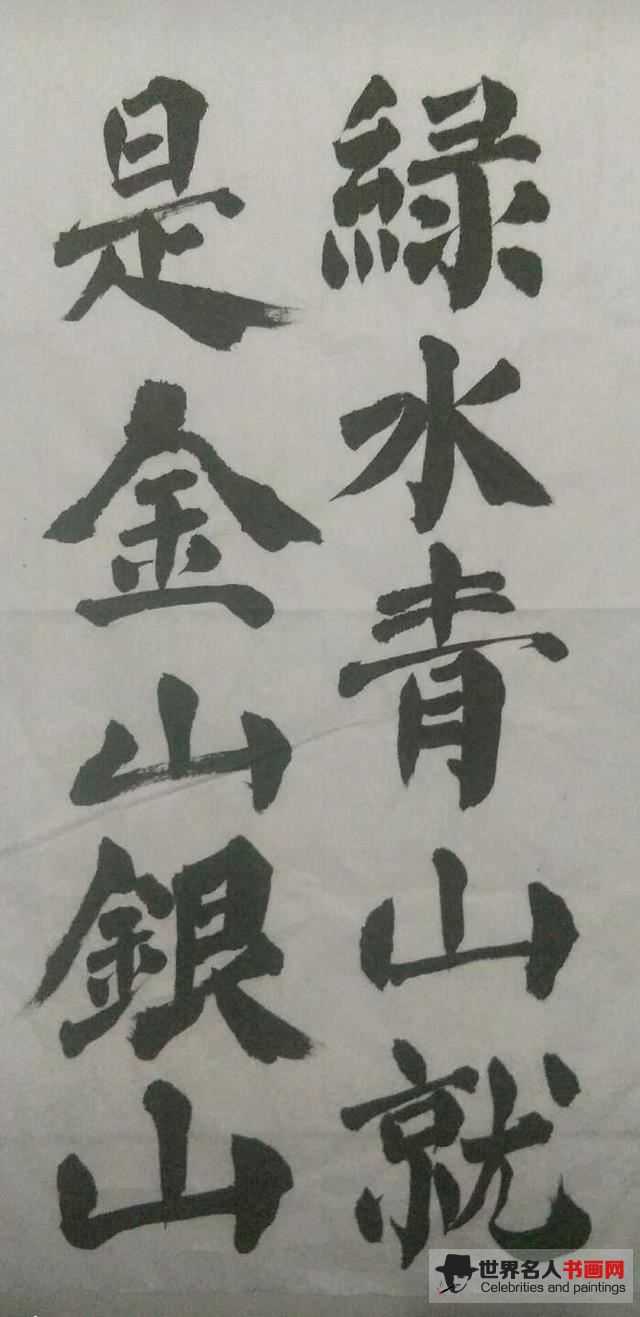 緑水青山就
是金山銀山
世界名人书画网
Celebrities and paintings